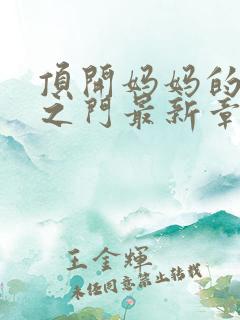 頂開妈妈的
之门最新章
王金輝
未经同意禁止转载